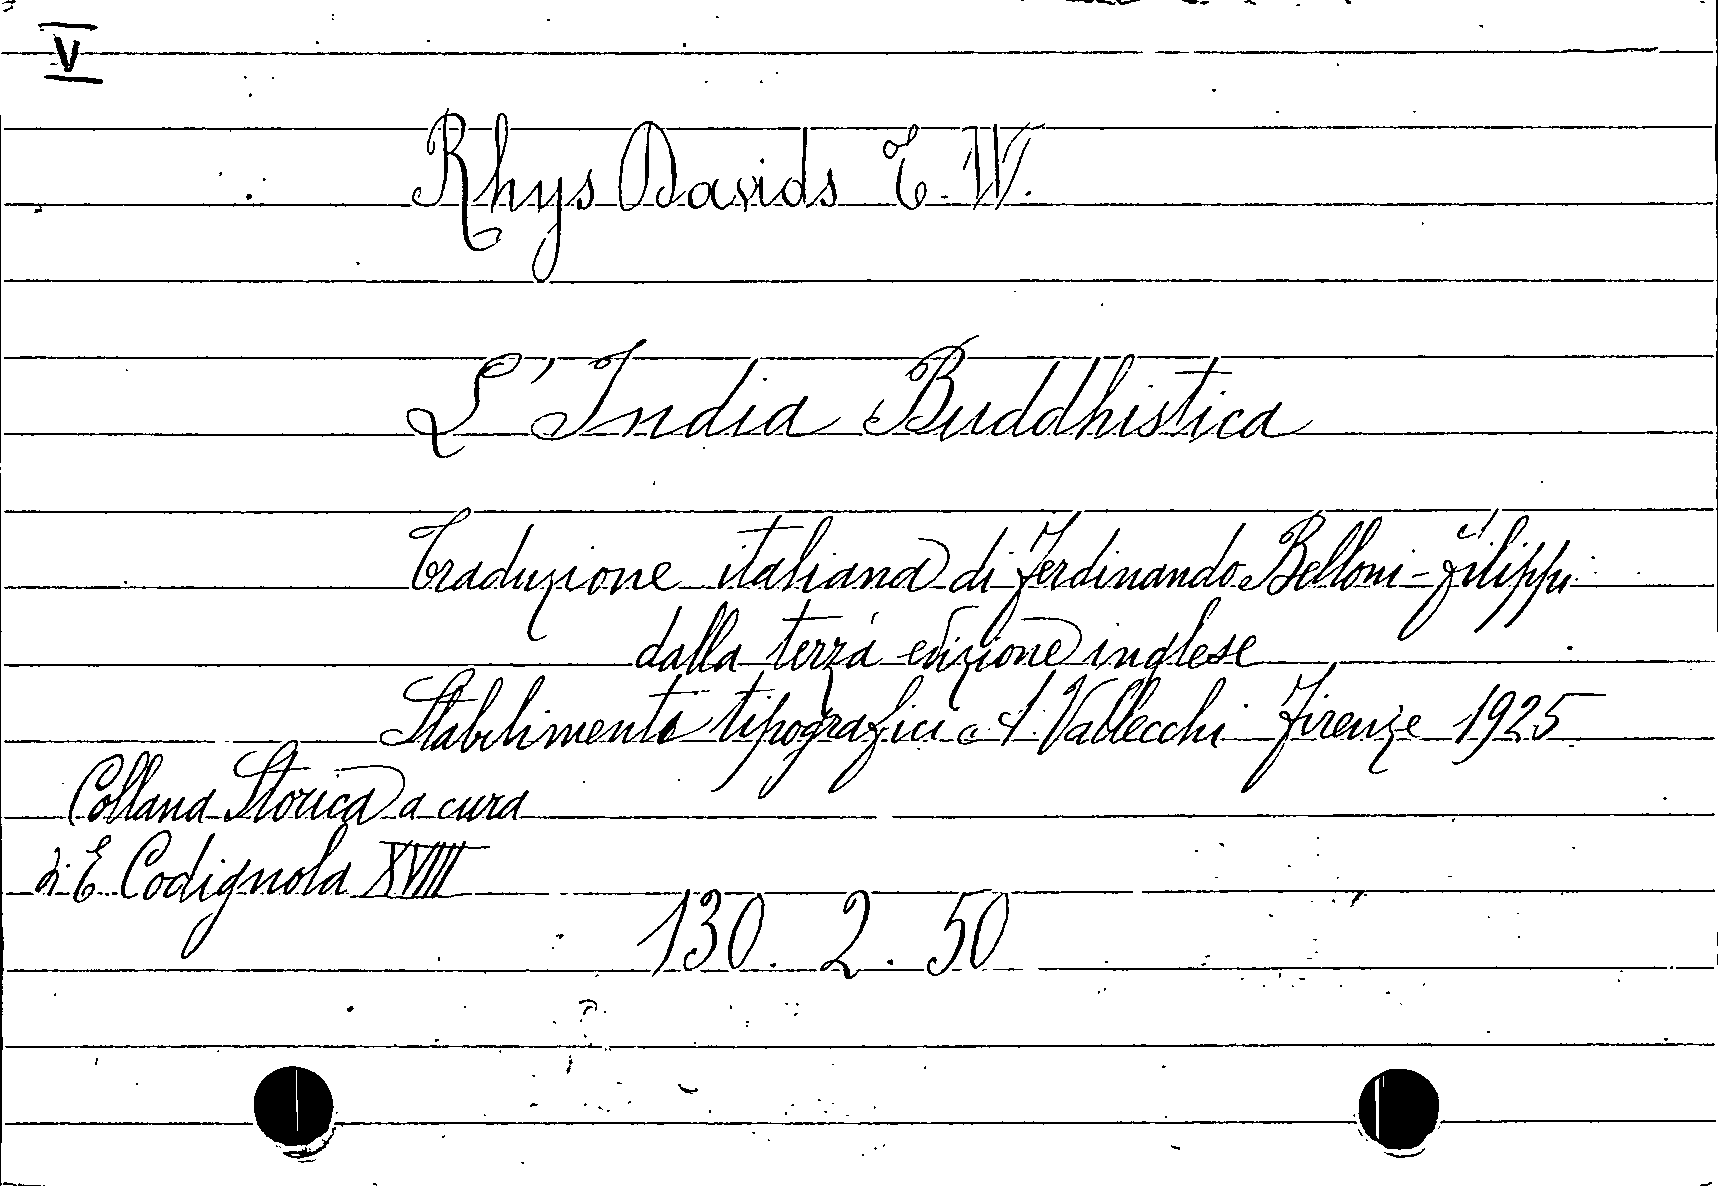 V
Rhys Davids T. W.
L'India Buddhistica
Traduzione italiana di Ferdinando Belloni-Filippi
dalla terza edizione inglese
Stabilimenti tipografici A. Vallecchi Firenze 1925
Collana Storica a cura
di E. Codignola XVIII
130. 2. 50